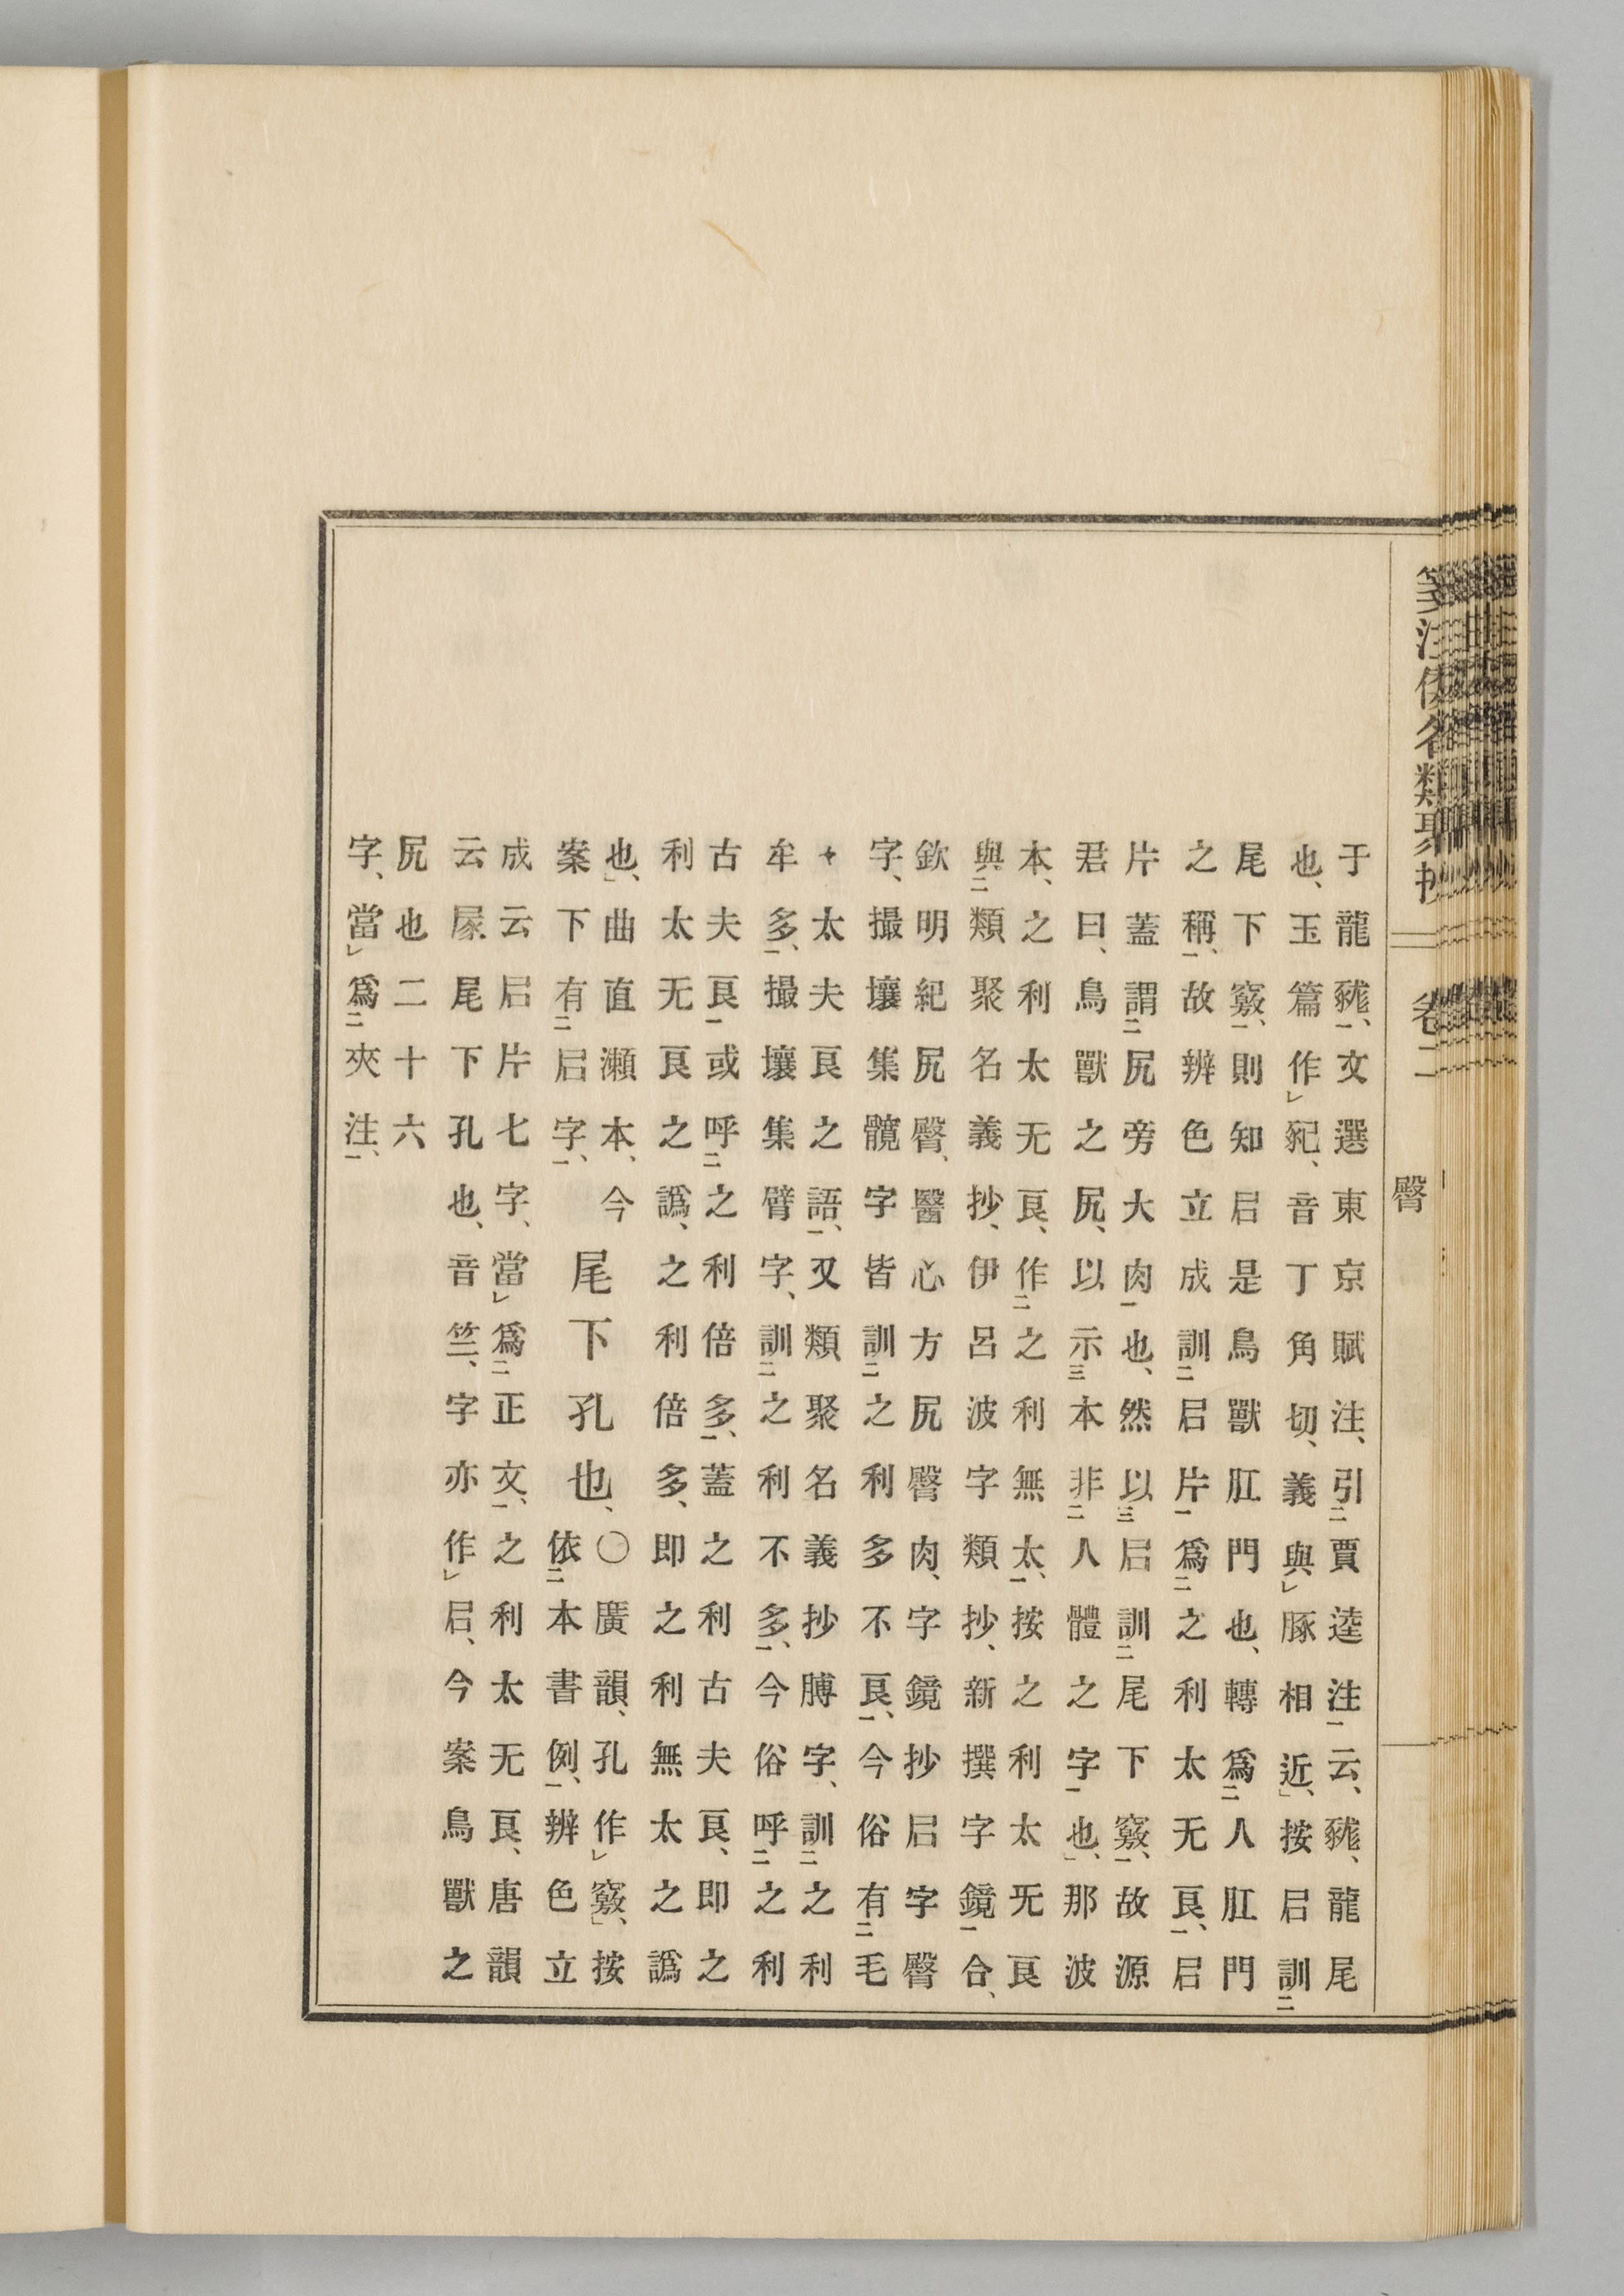 箋注倭名類聚抄 卷二 臀
于龍豵一、文選東京賦注、引二賈逵注一云、豵、龍尾
也、玉篇作レ豝、音丁角切、義與レ豚相近、按启訓二
尾下竅一、則知启是鳥獸肛門也、轉爲二人肛門
之稱一、故辨色立成訓二启片一爲二之利太无良一、启
片蓋謂二尻旁大肉一也、然以三启訓二尾下竅一、故源
君曰、鳥獸之尻、以示三本非二人體之字一也、那波
本、之利太无良、作二之利無太一、按之利太旡良
與二類聚名義抄、伊呂波字類抄、新撰字鏡一合、
欽明紀尻臀、醫心方尻臀肉、字鏡抄启字臀
字、撮壤集髖字皆訓二之利多不良一、今俗有二毛
々太夫良之語一、又類聚名義抄膊字、訓二之利
牟多一、撮壤集臂字、訓二之利不多一、今俗呼二之利
古夫良一或呼二之利倍多一、蓋之利古夫良、即之
利太无良之譌、之利倍多、即之利無太之譌
也、曲直瀬本、今
案下有二启字一、
尾下孔也、
○廣韻、孔作レ竅、按
依二本書例一、辨色立
成云启片七字、當レ爲二正文一、之利太无良、唐韻
云㞘尾下孔也、音竺、字亦作レ启、今案鳥獸之
尻也二十六
字、當レ爲二夾注一、